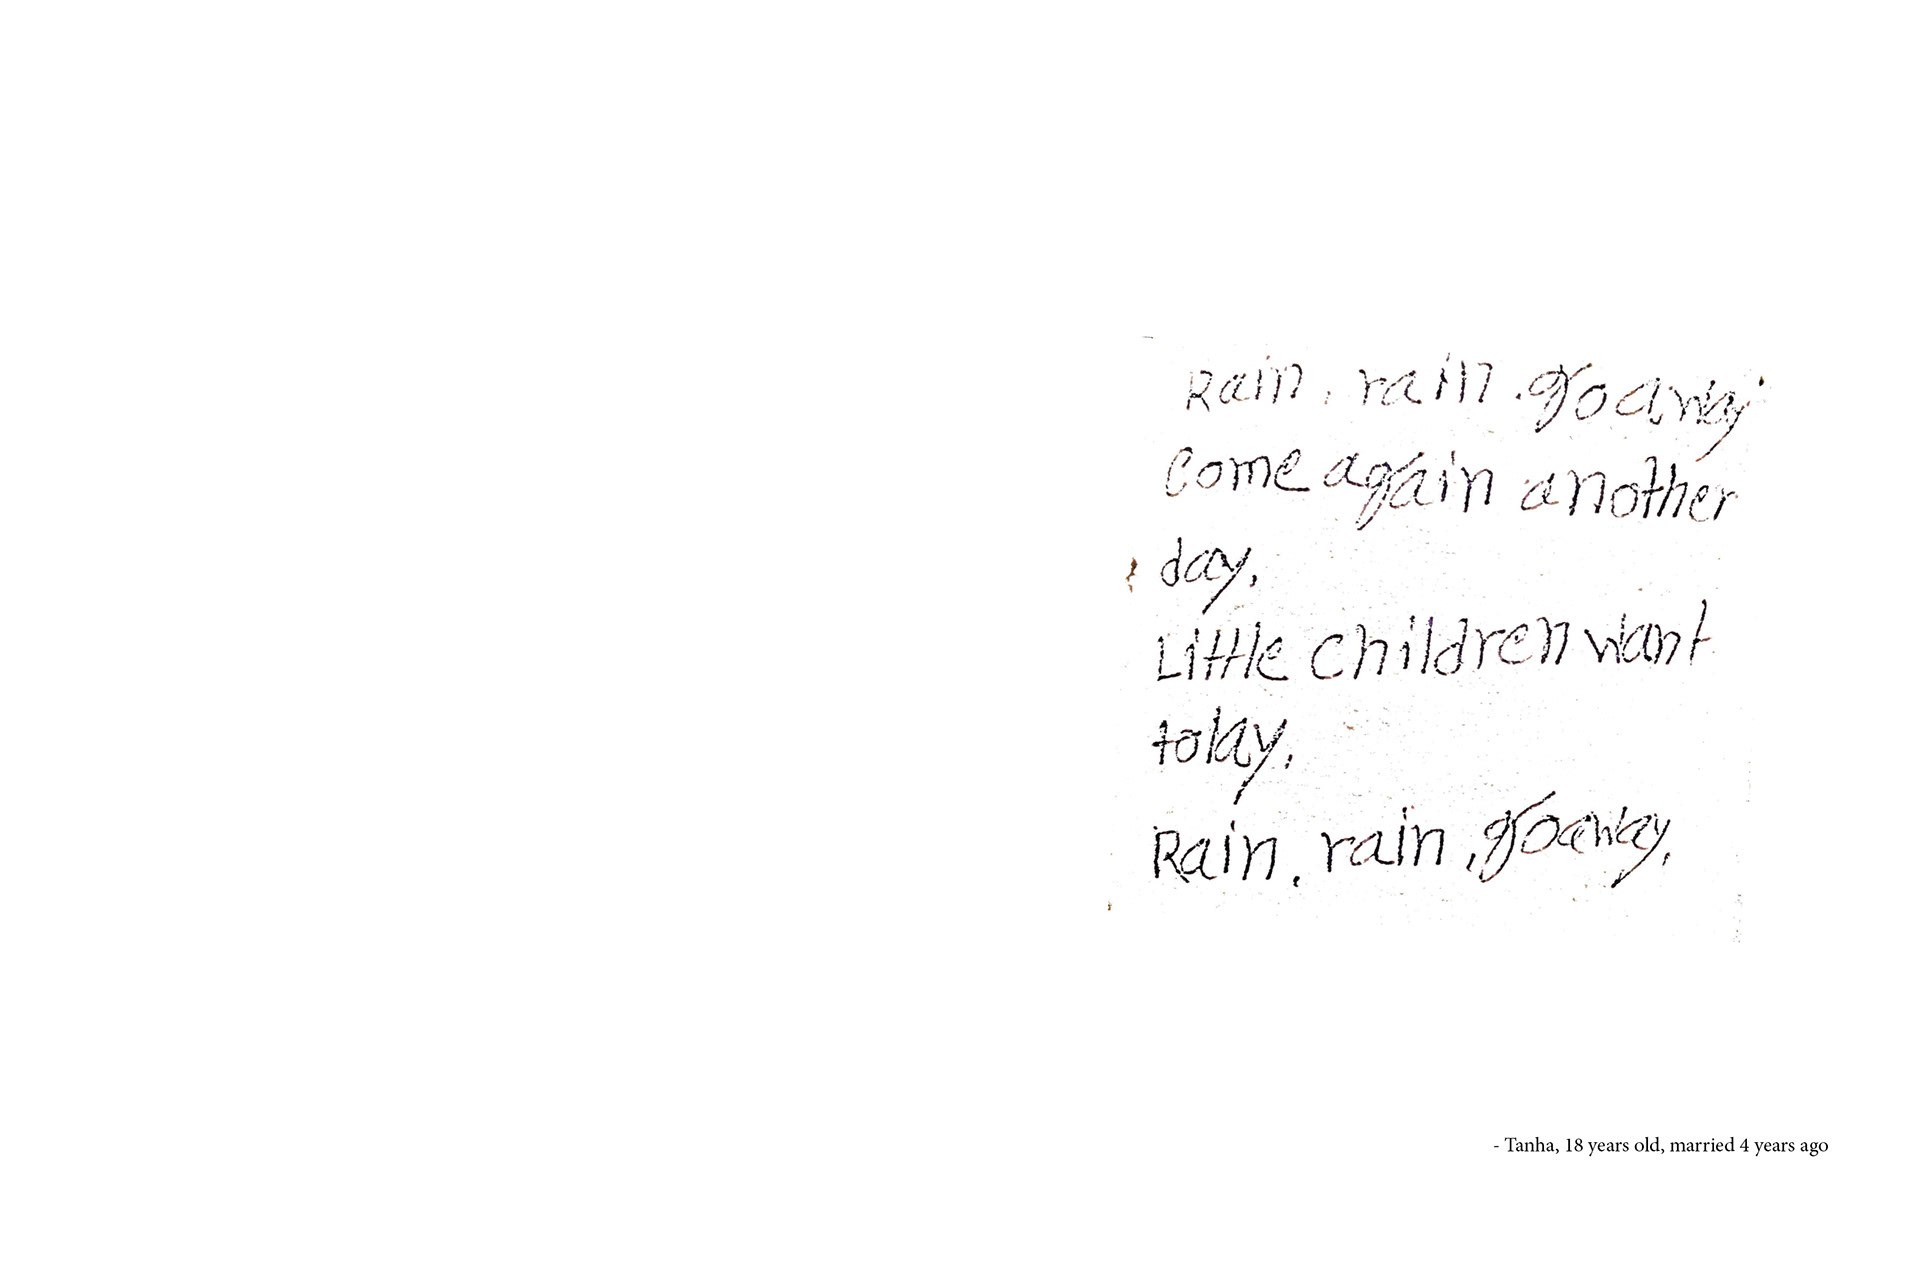 Rain, rain, go away
Come again another
day,
Little children want
tolay,
Rain, rain, go away,
- Tanha, 18 years old, married 4 years ago